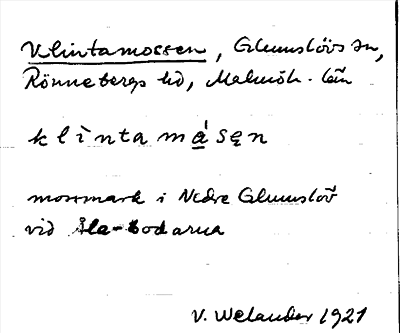 Klintamossen, Glumslövs sn,
Rönnebergs hd, Malmöh. län
klintamåsen
mossmark i Nedre Glumslöv
vid Åla-bodarna
V. Welander 1921